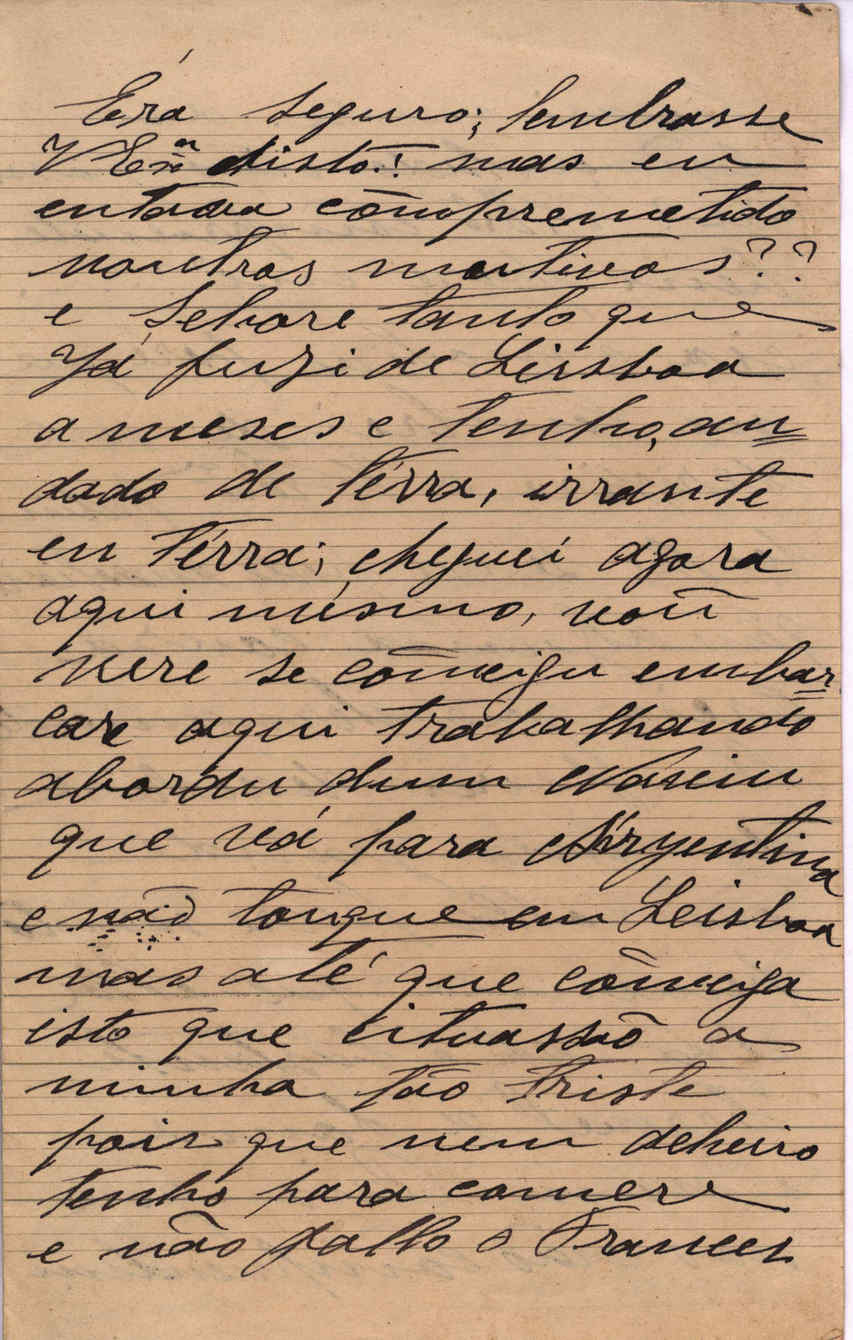 Éra seguro; lembrasse
V Exª disto.! mas eu
entava cõmpremetido
noutros mutivos??
e Sehore tanto que
Já fuzi de Leisboa
a meses e tenho, an=
dado de térra, irrante
en térra; cheguei agora
aqui mésmo, voũ
vere se cõmcigu embar=
care aqui trabalhando
abordu dum Naviu
que vá para Árgentina
e não touque em Leisboa
mas até que cõmciga
isto que cituassaõ a
minha tão triste
pois que nem deheiro
tenho para comere
e não fallo o Frances